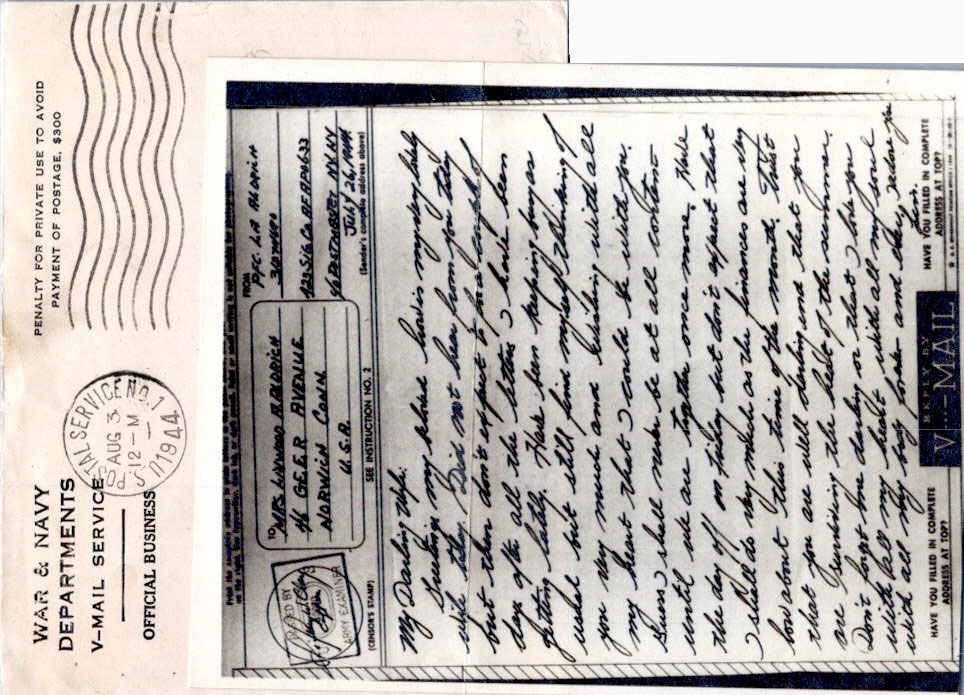 WAR & NAVY
DEPARTMENTS
V-MAIL SERVICE
OFFICIAL BUSINESS
PENALTY FOR PRIVATE USE TO AVOID
PAYMENT OF POSTAGE, $300
U.S. POSTAL SERVICE NO. 1
AUG 3
12-M
1944
Print the complete address in plain
PASSED BY
ARMY EXAMINER
(CENSOR'S STAMP)
TO
MRS LEONARD A. ALDRICH
46 GEER AVENUE
NORWICH CONN.
U.S.A
SEE INSTRUCTION NO. 2
FROM
PFC. L.A. ALDRICH
POSTMASTER NY NY
JULY 26, 1944
(Sender's complete address above)
My Darling Wife:
Greetings my beloved how is my lady
while there. Did not hear from you today
but then don't expect to for a couple of
days after all the letters I have been
getting lately. Have been keeping busy as
usual but still find myself thinking of
you very much and wishing with all
my heart that I could be with you.
Guess I shall never be at all content
until we are together once more. Have
the day off on Friday but don't expect that
I shall do very much as the finances are very
low about this time of the month. Trust
that you are well darling and that you
are enjoying the best of the summer.
Don't forget me darling or that I love you
with all my heart with all my soul
with all my body forever and a day. Yours
Len.
HAVE YOU FILLED IN COMPLETE
ADDRESS AT TOP?
REPLY BY
V···-MAIL
HAVE YOU FILLED IN COMPLETE
ADDRESS AT TOP?